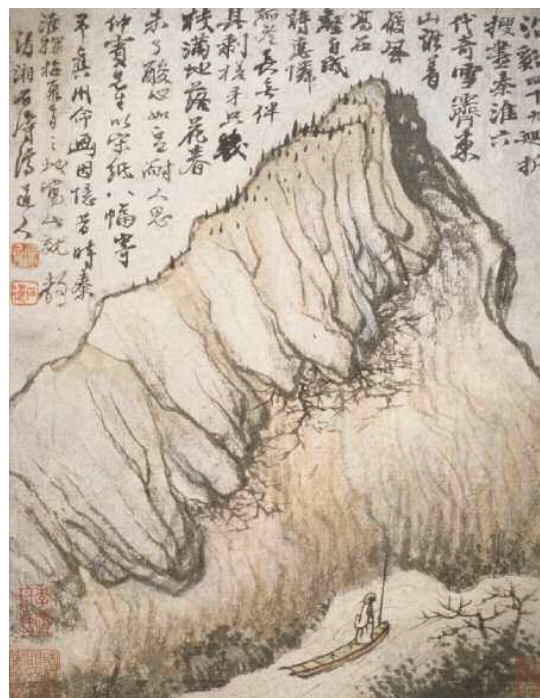 沿谿四十九迴折
搜盡秦淮六
代奇雪霽東
山誰着
屐風
高石
壑自成
詩應憐
孤老長無伴
具剩槎牙只幾
枝滿地落花春
未了酸心如豆耐人思
仲賓先生以宋紙八幅寄
予冀用命画因憶昔時秦
淮探梅之地寫此就教
清湘石濤濟道人